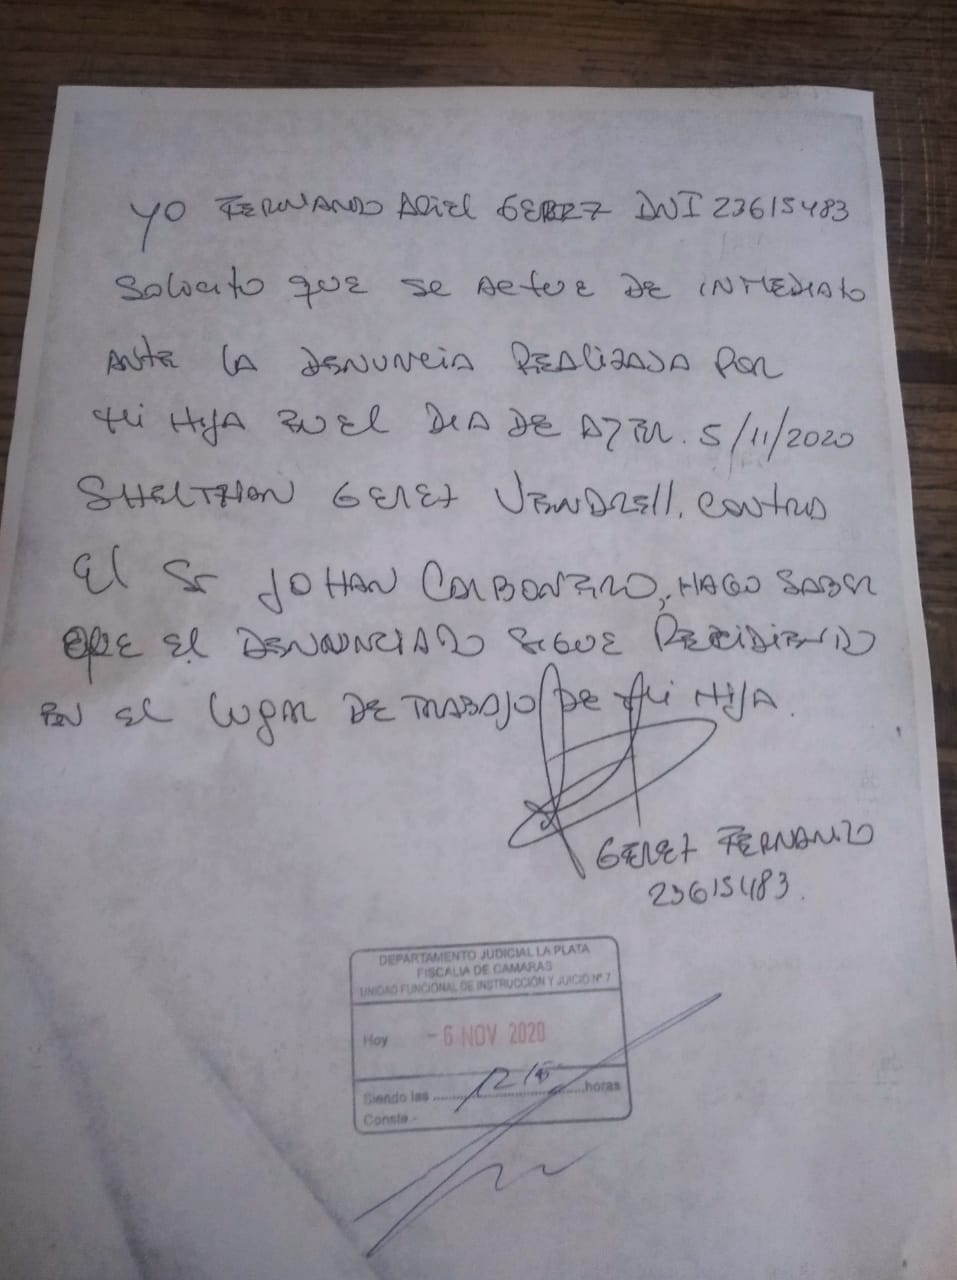 YO FERNANDO ARIEL GEREZ DNI 23615483
Solicito que se ACTUE DE INMEDIATO
ANTE LA DENUNCIA REALIZADA POR
MI HIJA EN El DIA DE AYER. 5/11/2020
GEREZ VENDRELL. CONTRA
El Sr JOHAN CARBONERO, HAGO SABER
QUE El DENUNCIADO SIGUE RECIDIENDO
EN El lugar DE TRABAJO DE MI HIJA.
GEREZ FERNANDO
23615483.
DEPARTAMENTO JUDICIAL LA PLATA
FISCALIA DE CAMARAS
UNIDAD FUNCIONAL DE INSTRUCCIÓN Y JUICIO Nº 7
Hoy - 6 NOV 2020
Siendo las ..............horas
Conste -